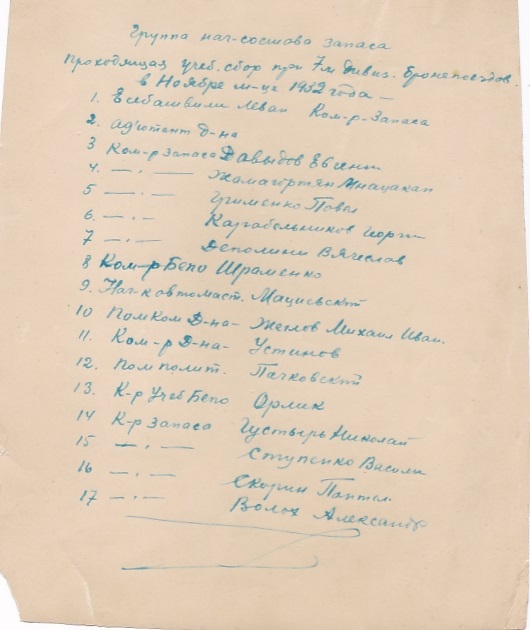 Группа нач-состава запаса
проходящая учеб. сбор при 7м дивиз. бронепоездов.
в Ноябре м-це 1932 года —
1. Еебашвили Леван Ком-р-Запаса
2. ад'ютент д-на
3 Ком-р запаса Давыдов Евгени
4. — . — Жамагортян Мнацакан
5 — . — Гриненко Павел
6. — . — Каргабельников Георги
7 — . — Деполини Вячеслав
8 Ком-р Бепо Шраменко
9. Нач-к автомаст. Мациевский
10 ПомКом Д-на- Жеглов Михаил Иван.
11. Ком-р Д-на- Устинов
12. Помполит. Пачковский
13. К-р Учеб Бепо Орлик
14 К-р Запаса Густырь Николай
15 — . — Ступенко Васили
16 — . — Скорин Пантел.
17 — . — Волох Александр